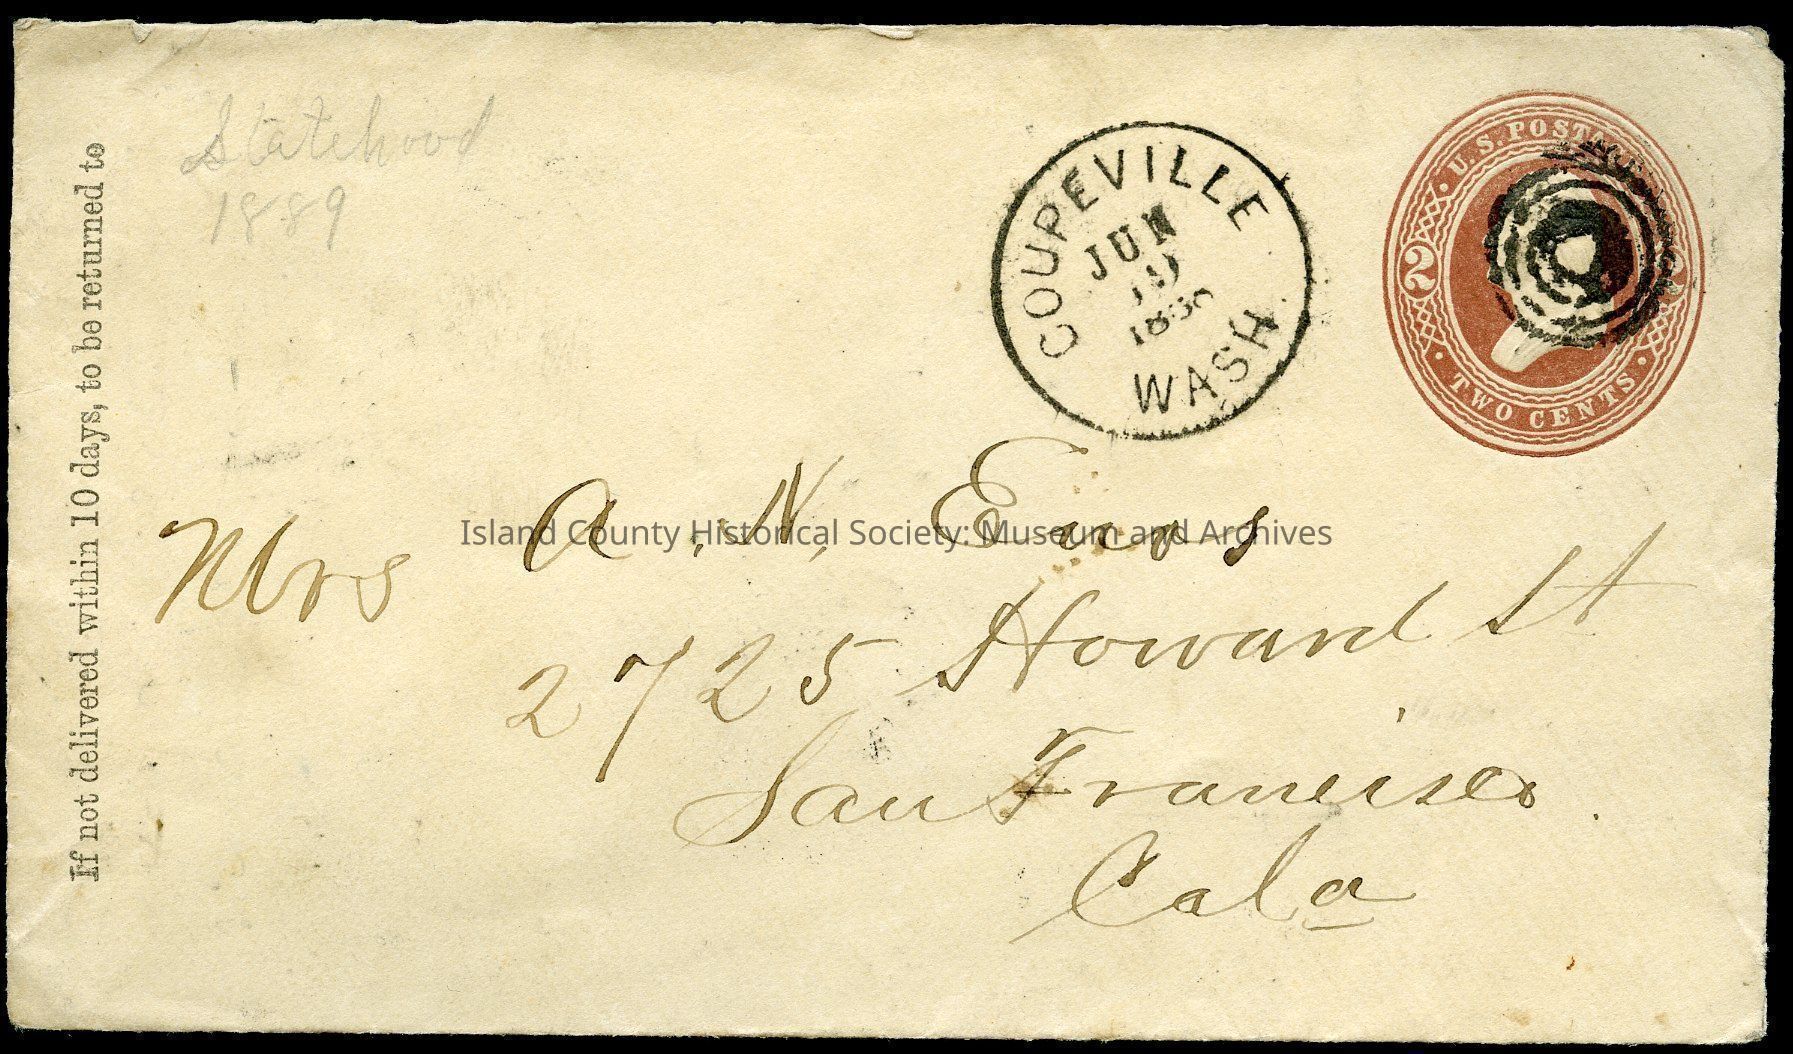 Statehood
1889
If not delivered within 10 days, to be returned to
COUPEVILLE
JUN
19
WASH.
U.S. POSTAGE
2 2
TWO CENTS
Mrs A. N. Enos
Island County Historical Society: Museum and Archives
2725 Howard St
San Francisco.
Cala